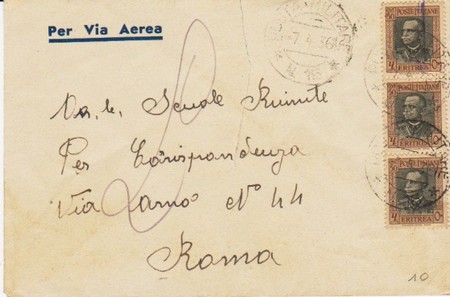 Per Via Aerea
POSTA MILITARE
7.4.36
N 115
POSTE ITALIANE
ERITREA
POSTE ITALIANE
ERITREA
POSTE ITALIANE
ERITREA
Scuole Riunite
Per Corispondenza
Via Arno N° 44
Roma
10